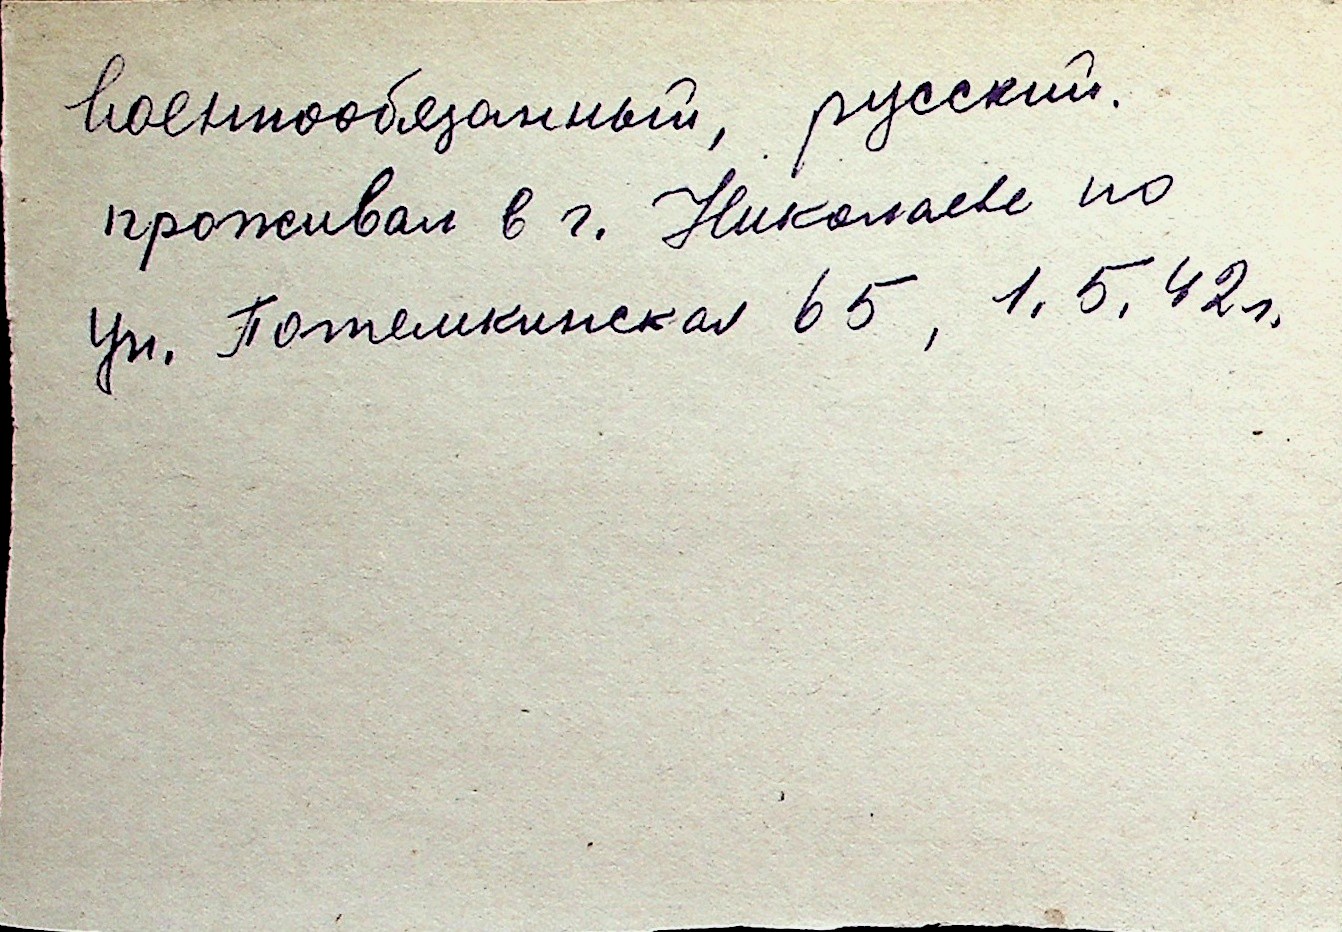 военнообязанный, русский.
проживал в г. Николаеве по
ул. Потемкинская 65, 1.5.42г.